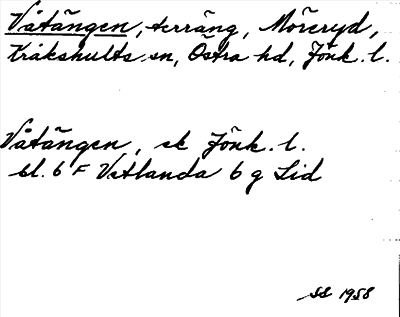 Våtängen, terräng, Möreryd,
Kråkshults sn, Östra hd, Jönk. l.
Våtängen, ek Jönk. l.
bl. 6 F Vetlanda 6 g Lid
SS 1958